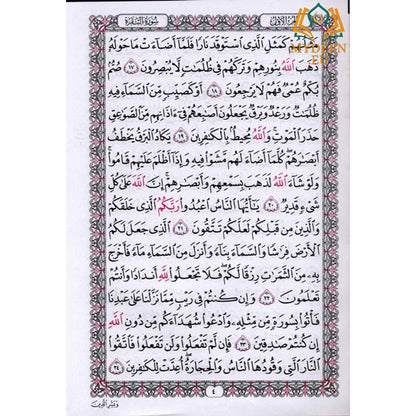 سورة البقرة
الجزء الأول
MYDEEN
مَثَلُهُمْ كَمَثَلِ الَّذِي اسْتَوْقَدَ نَارًا فَلَمَّا أَضَاءَتْ مَا حَوْلَهُ
ذَهَبَ اللَّهُ بِنُورِهِمْ وَتَرَكَهُمْ فِي ظُلُمَاتٍ لَا يُبْصِرُونَ ١٧ صُمٌّ
بُكْمٌ عُمْيٌ فَهُمْ لَا يَرْجِعُونَ ١٨ أَوْ كَصَيِّبٍ مِنَ السَّمَاءِ فِيهِ
ظُلُمَاتٌ وَرَعْدٌ وَبَرْقٌ يَجْعَلُونَ أَصَابِعَهُمْ فِي آذَانِهِمْ مِنَ الصَّوَاعِقِ
حَذَرَ الْمَوْتِ وَاللَّهُ مُحِيطٌ بِالْكَافِرِينَ ١٩ يَكَادُ الْبَرْقُ يَخْطَفُ
أَبْصَارَهُمْ كُلَّمَا أَضَاءَ لَهُمْ مَشَوْا فِيهِ وَإِذَا أَظْلَمَ عَلَيْهِمْ قَامُوا
وَلَوْ شَاءَ اللَّهُ لَذَهَبَ بِسَمْعِهِمْ وَأَبْصَارِهِمْ إِنَّ اللَّهَ عَلَى كُلِّ
شَيْءٍ قَدِيرٌ ٢٠ يَا أَيُّهَا النَّاسُ اعْبُدُوا رَبَّكُمُ الَّذِي خَلَقَكُمْ
وَالَّذِينَ مِنْ قَبْلِكُمْ لَعَلَّكُمْ تَتَّقُونَ ٢١ الَّذِي جَعَلَ لَكُمُ
الْأَرْضَ فِرَاشًا وَالسَّمَاءَ بِنَاءً وَأَنْزَلَ مِنَ السَّمَاءِ مَاءً فَأَخْرَجَ
بِهِ مِنَ الثَّمَرَاتِ رِزْقًا لَكُمْ فَلَا تَجْعَلُوا لِلَّهِ أَنْدَادًا وَأَنْتُمْ
تَعْلَمُونَ ٢٢ وَإِنْ كُنْتُمْ فِي رَيْبٍ مِمَّا نَزَّلْنَا عَلَى عَبْدِنَا
فَأْتُوا بِسُورَةٍ مِنْ مِثْلِهِ وَادْعُوا شُهَدَاءَكُمْ مِنْ دُونِ اللَّهِ
إِنْ كُنْتُمْ صَادِقِينَ ٢٣ فَإِنْ لَمْ تَفْعَلُوا وَلَنْ تَفْعَلُوا فَاتَّقُوا
النَّارَ الَّتِي وَقُودُهَا النَّاسُ وَالْحِجَارَةُ أُعِدَّتْ لِلْكَافِرِينَ ٢٤
٤
وبشر الذين